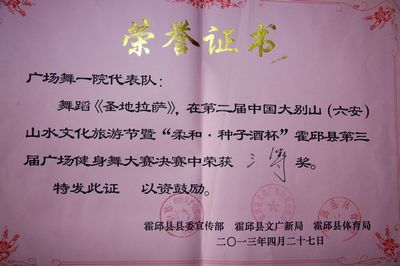 荣誉证书
广场舞一院代表队：
舞蹈《圣地拉萨》，在第二届中国大别山（六安）
山水文化旅游节暨“柔和·种子酒杯”霍邱县第三
届广场健身舞大赛决赛中荣获 三等 奖。
特发此证 以资鼓励。
霍邱县县委宣传部 霍邱县文广新局 霍邱县体育局
二〇一三年四月二十七日